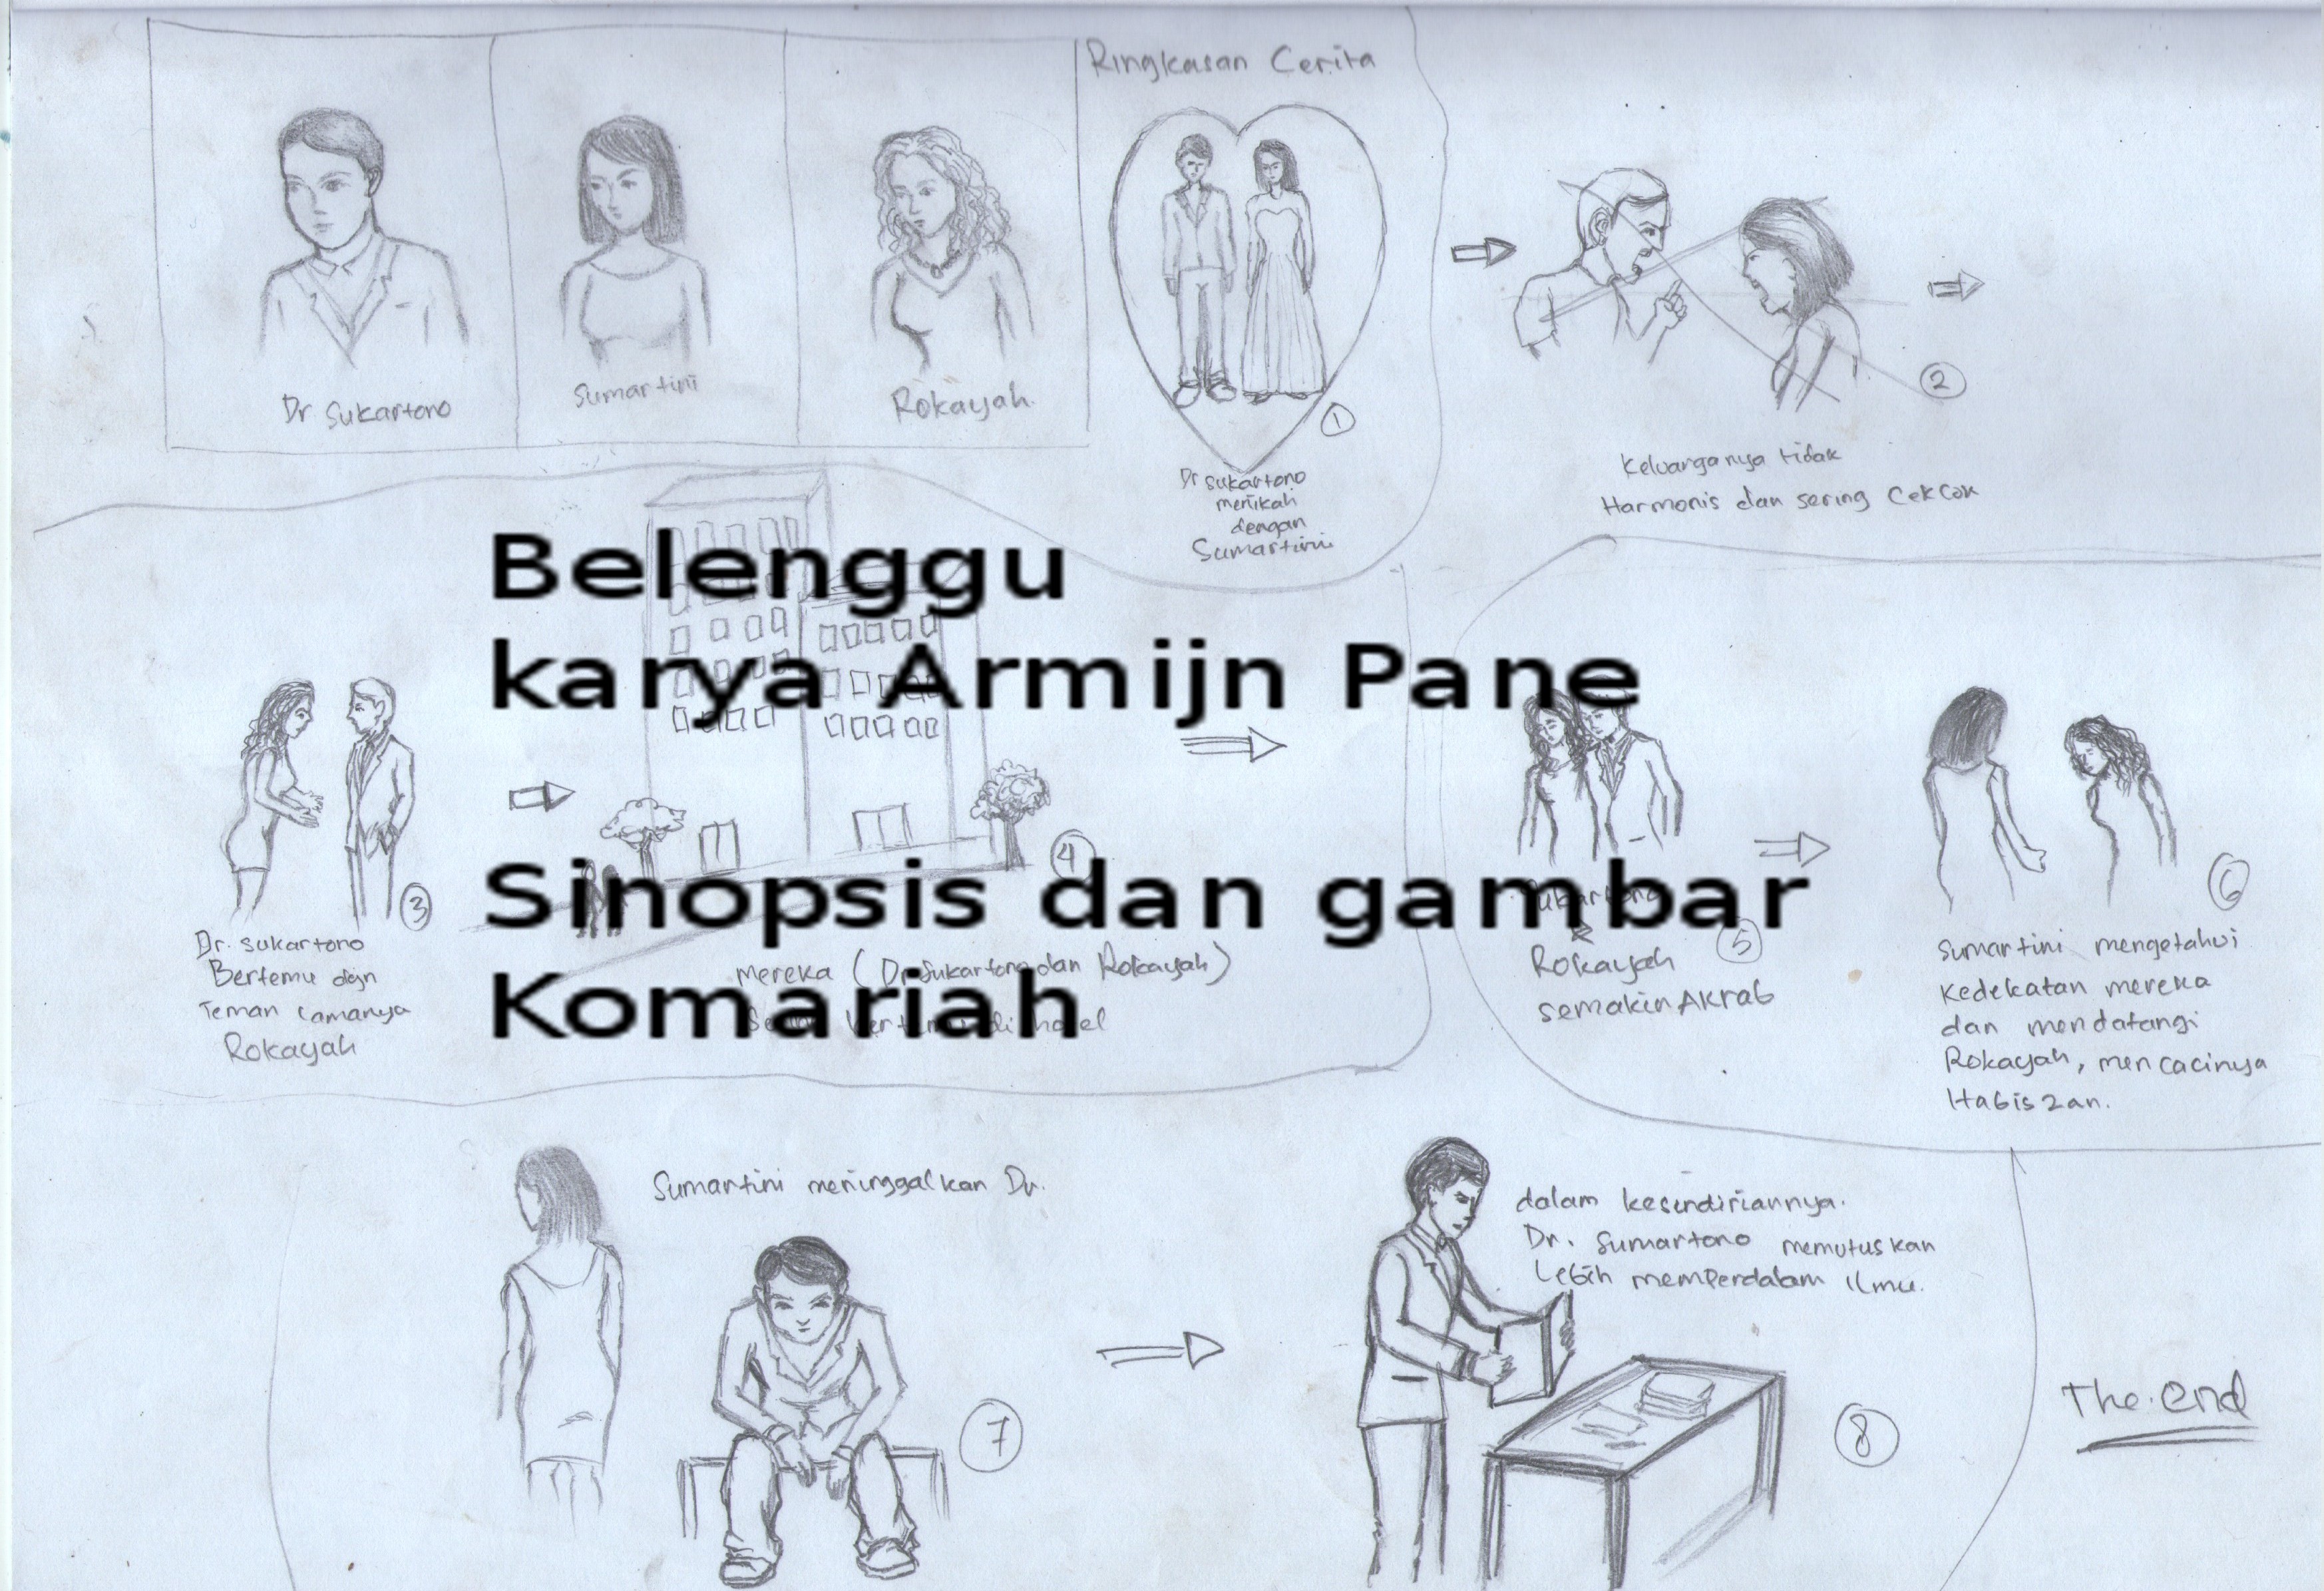 Ringkasan Cerita
Dr Sukartono
Sumartini
Rokayah.
1
Dr Sukartono
menikah
dengan
Sumartini
2
Keluarganya tidak
Harmonis dan sering Cekcok
Belenggu
karya Armijn Pane
Sinopsis dan gambar
Komariah
3
Dr. Sukartono
Bertemu dgn
Teman Lamanya
Rokayah
4
Mereka (Dr. Sukartono dan Rokayah)
di hotel
5
Sukartono
&
Rokayah
semakin AKrab
6
Sumartini mengetahui
Kedekatan mereka
dan mendatangi
Rokayah, mencacinya
Habis2an.
Sumartini meninggalkan Dr.
7
dalam kesindiriannya.
Dr. Sumartono memutuskan
Lebih memperdalam ilmu.
8
The.end